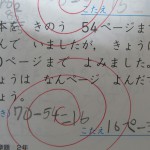 こたえ
本を きのう 54ページま
んで いましたが、きょうは
0ページまで よみました。
ょうは なんページ よんだで
70-54=16
こたえ 16ページ
2年